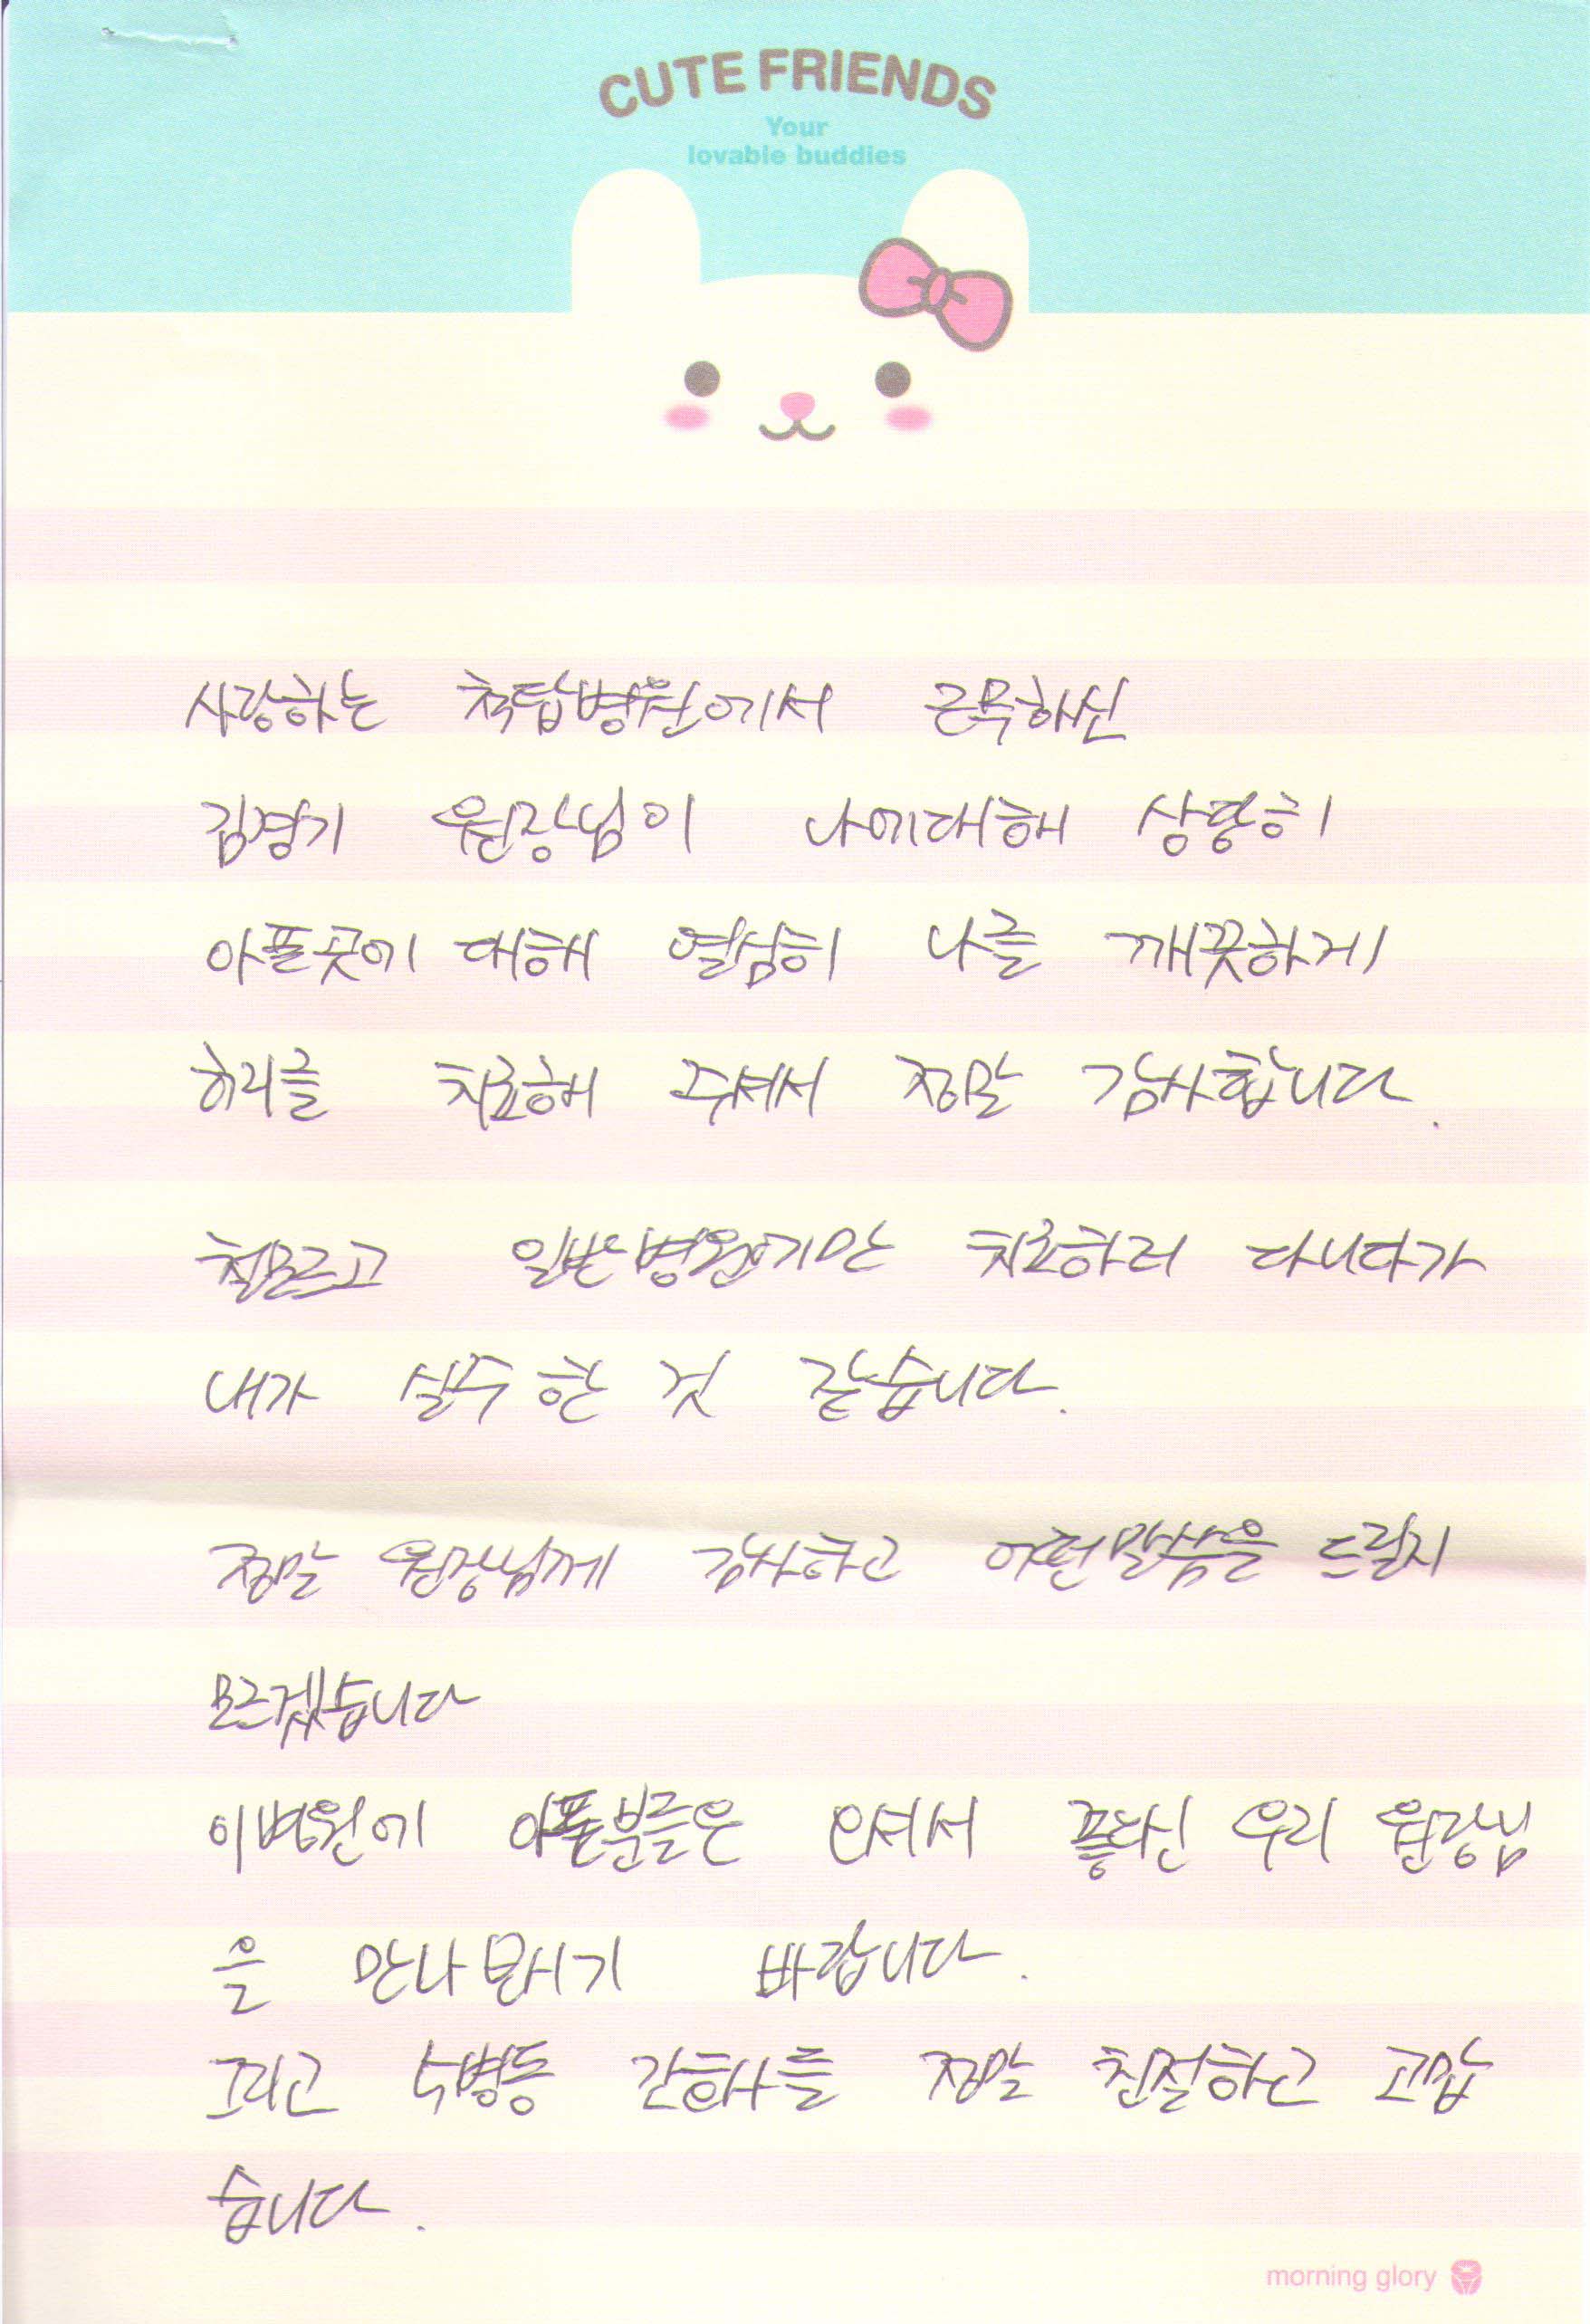 CUTE FRIENDS
Your
lovable buddies
사랑하는 척탑병원에서 근무하신
김경기 원장님이 나에대해 상황히
아풀곳에 대해 열심히 나를 깨끗하게
허리를 치료해 주셔서 정말 감사합니다.
철모르고 일반병원에만 치료하러 다니다가
내가 실수한 것 같습니다.
정말 원장님께 감사하고 어떤말씀을 드릴지
모르겠습니다
이병원에 아픈분들은 오셔서 우리 원장님
을 만나보시기 바랍니다.
그리고 병동 간호사들 정말 친절하고 고맙
습니다.
morning glory